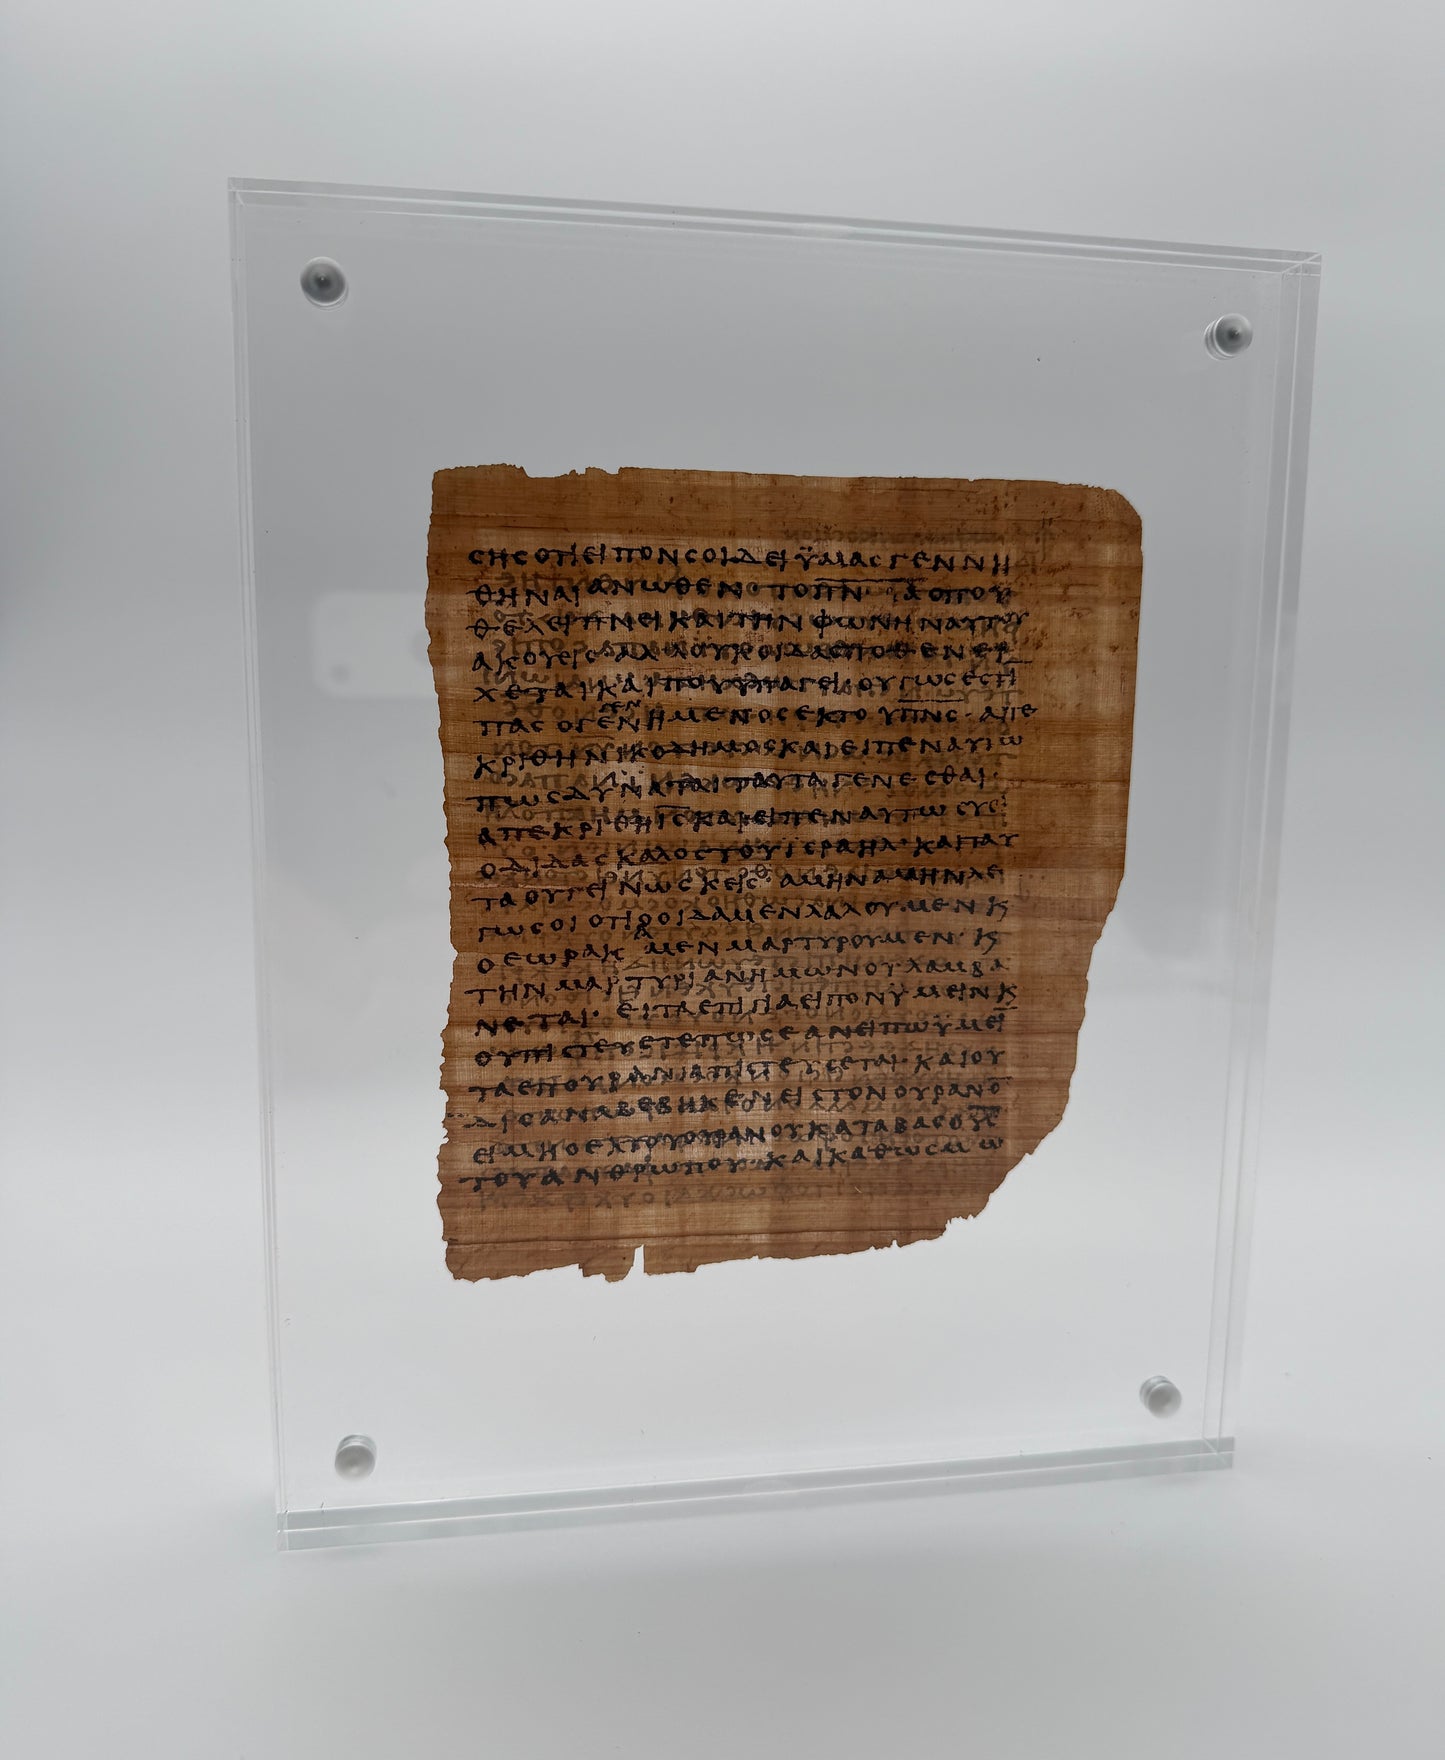 ϹΗϹΟΤΙΕΙΠΟΝϹΟΙΔΕΙΫΜΑϹΓΕΝΝΗ
ΘΗΝΑΙΑΝΩΘΕΝ·ΤΟΠ̅Ν̅Α̅ΟΠΟΥ
ΘΕΛΕΙΠΝΕΙΚΑΙΤΗΝΦΩΝΗΝΑΥΤΟΥ
ΑΚΟΥΕΙϹ·ΑΛΛΟΥΚΟΙΔΑϹΠΟΘΕΝΕΡ
ΧΕΤΑΙΚΑΙΠΟΥΥΠΑΓΕΙ·ΟΥΤΩϹΕϹΤΙ
ΠΑϹΟΓΕΓΕΝΝΗΜΕΝΟϹΕΚΤΟΥΠ̅Ν̅Ϲ̅·ΑΠΕ
ΚΡΙΘΗΝΙΚΟΔΗΜΟϹΚΑΙΕΙΠΕΝΑΥΤΩ
ΠΩϹΔΥΝΑΤΑΙΤΑΥΤΑΓΕΝΕϹΘΑΙ·
ΑΠΕΚΡΙΘΗΙ̅Ϲ̅ΚΑΙΕΙΠΕΝΑΥΤΩϹΥΕΙ
ΟΔΙΔΑϹΚΑΛΟϹΤΟΥΙϹΡΑΗΛ·ΚΑΙΤΑΥ
ΤΑΟΥΓΕΙΝΩϹΚΕΙϹ·ΑΜΗΝΑΜΗΝΛΕ
ΓΩϹΟΙΟΤΙΟΟΙΔΑΜΕΝΛΑΛΟΥΜΕΝΚ
ΟΕΩΡΑΚΑΜΕΝΜΑΡΤΥΡΟΥΜΕΝ·Κ
ΤΗΝΜΑΡΤΥΡΙΑΝΗΜΩΝΟΥΛΑΜΒΑ
ΝΕΤΑΙ·ΕΙΤΑΕΠΙΓΙΑΕΙΠΟΝΫΜΕΙΝΚ
ΟΥΠΙϹΤΕΥΕΤΕΠΩϹΕΑΝΕΙΠΩΫΜΕΙ̅
ΤΑΕΠΟΥΡΑΝΙΑΠΙϹΤΕΥϹΕΤΑΙ·ΚΑΙΟΥ
ΔΙϹΑΝΑΒΕΒΗΚΕΝΕΙϹΤΟΝΟΥΡΑΝΟ̅
ΕΙΜΗΟΕΚΤΟΥΟΥΡΑΝΟΥΚΑΤΑΒΑϹΟΥ̅Ϲ̅
ΤΟΥΑΝΘΡΩΠΟΥ·ΚΑΙΚΑΘΩϹΜΩ